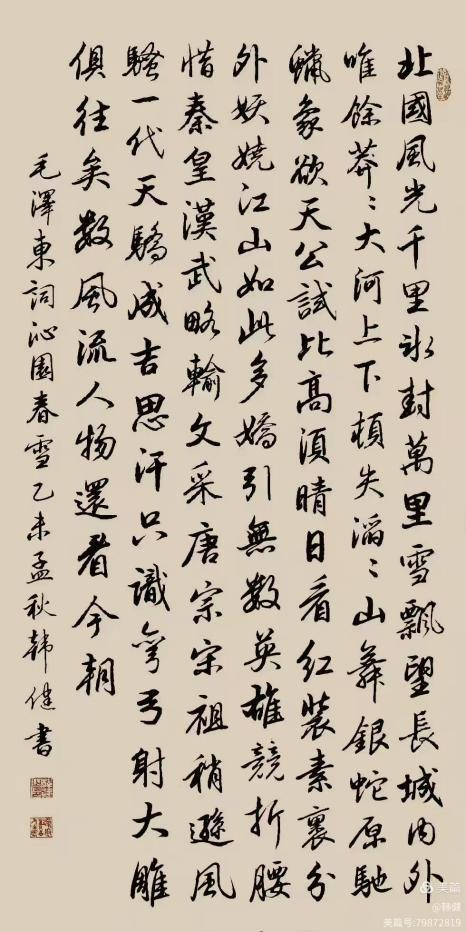 北國風光千里冰封萬里雪飄望長城内外
唯餘莽〻大河上下頓失滔〻山舞銀蛇原馳
蠟象欲天公試比高須晴日看紅裝素裹分
外妖嬈江山如此多嬌引無數英雄競折腰
惜秦皇漢武略輸文采唐宗宋祖稍遜風
騷一代天驕成吉思汗只識彎弓射大雕
俱往矣數風流人物還看今朝
毛澤東詞沁園春雪乙未孟秋韩健書
美篇
@韩健
美篇号:79872819